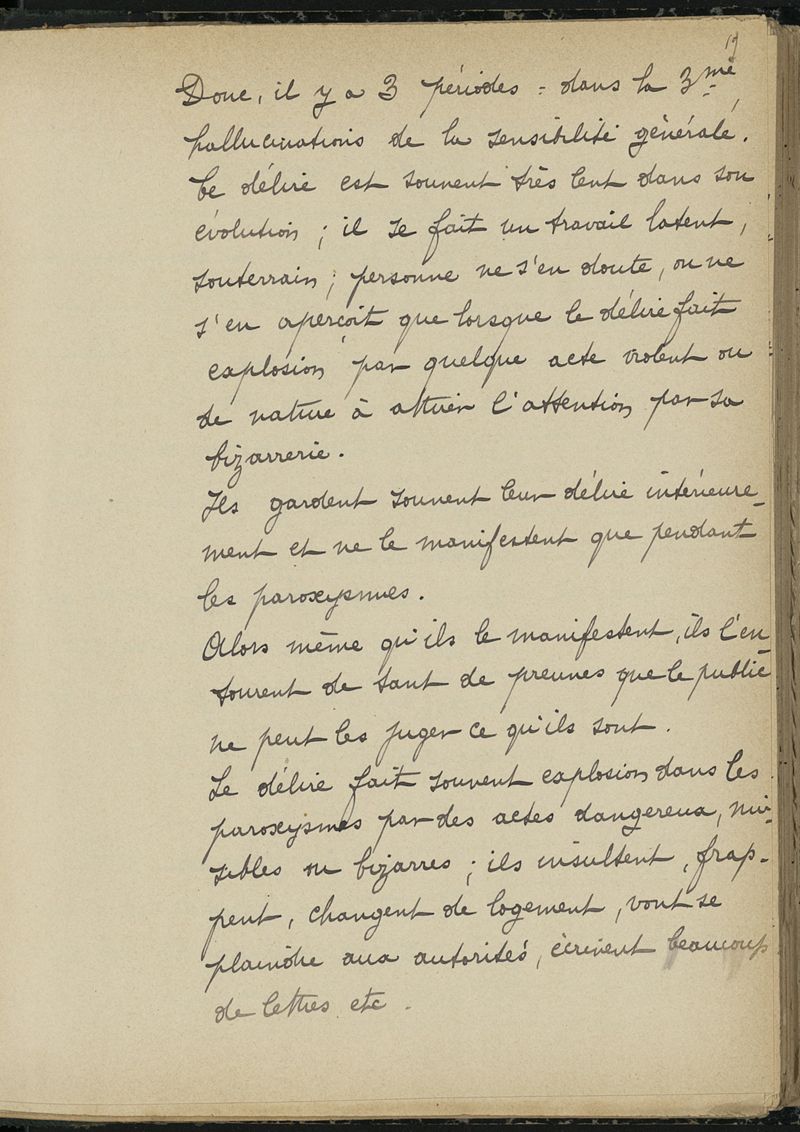 19
Donc, il y a 3 périodes = dans la 3me,
hallucinations de la sensibilité générale.
Le délire est souvent très lent dans son
évolution ; il se fait un travail latent,
souterrain ; personne ne s'en doute, on ne
s'en aperçoit que lorsque le délire fait
explosion par quelque acte violent ou
de nature à attirer l'attention par sa
bizarrerie.
Ils gardent souvent leur délire intérieure-
ment et ne le manifestent que pendant
les paroxysmes.
Alors même qu'ils le manifestent, ils l'en-
tourent de tant de preuves que le public
ne peut les juger ce qu'ils sont.
Le délire fait souvent explosion dans les
paroxysmes par des actes dangereux, nui-
sibles ou bizarres ; ils insultent, frap-
pent, changent de logement, vont se
plaindre aux autorités, écrivent beaucoup
de lettres etc.